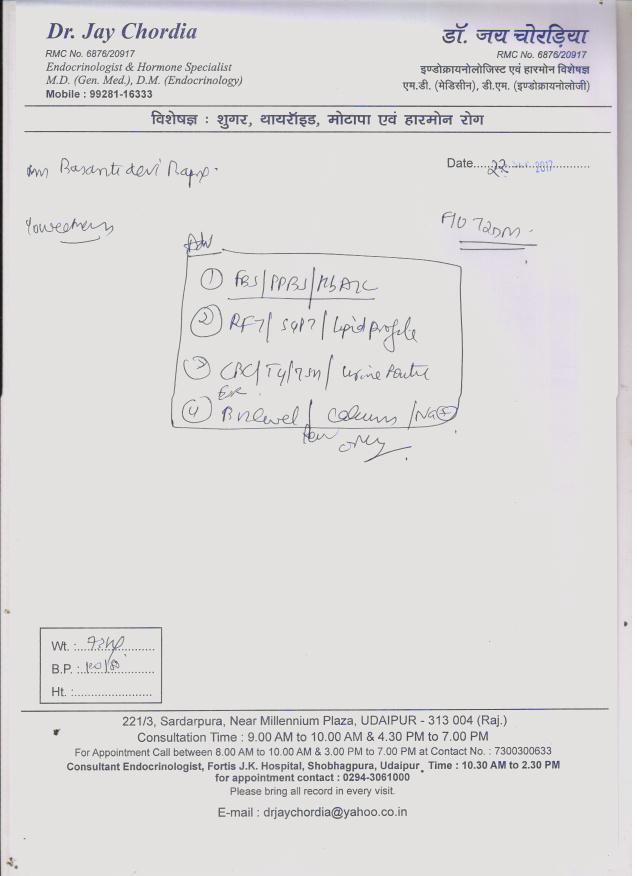 Dr. Jay Chordia
RMC No. 6876/20917
Endocrinologist & Hormone Specialist
M.D. (Gen. Med.), D.M. (Endocrinology)
Mobile : 99281-16333
डॉ. जय चोरड़िया
RMC No. 6876/20917
इण्डोक्रायनोलोजिस्ट एवं हारमोन विशेषज्ञ
एम.डी. (मेडिसीन), डी.एम. (इण्डोक्रायनोलोजी)
विशेषज्ञ : शुगर, थायरॉइड, मोटापा एवं हारमोन रोग
Basanti devi
Date 22 2017
F/O T2DM
Adv
① FBS/PPBS/HbA1C
② RFT/SGPT/Lipid profile
③ CBC/T4/TSH/Urine Routine
④ B12 level / Calcium /Na
only
Wt. :
B.P. :
Ht. :
221/3, Sardarpura, Near Millennium Plaza, UDAIPUR - 313 004 (Raj.)
Consultation Time : 9.00 AM to 10.00 AM & 4.30 PM to 7.00 PM
For Appointment Call between 8.00 AM to 10.00 AM & 3.00 PM to 7.00 PM at Contact No. : 7300300633
Consultant Endocrinologist, Fortis J.K. Hospital, Shobhagpura, Udaipur, Time : 10.30 AM to 2.30 PM
for appointment contact : 0294-3061000
Please bring all record in every visit.
E-mail : drjaychordia@yahoo.co.in